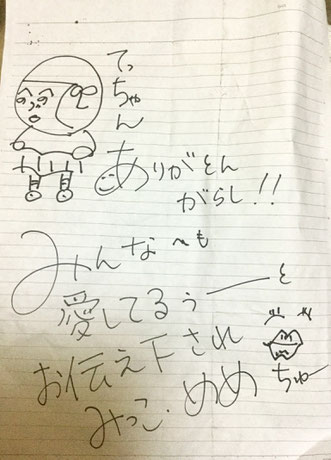 てっちゃん
ありがとん
がらし!!
みんなへも
愛してるぅーーと
お伝え下され
みっこ.めめ
ちゅー